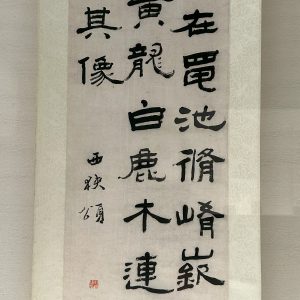 在黽池脩崤嶔
黃龍白鹿木連
其像
西狹頌